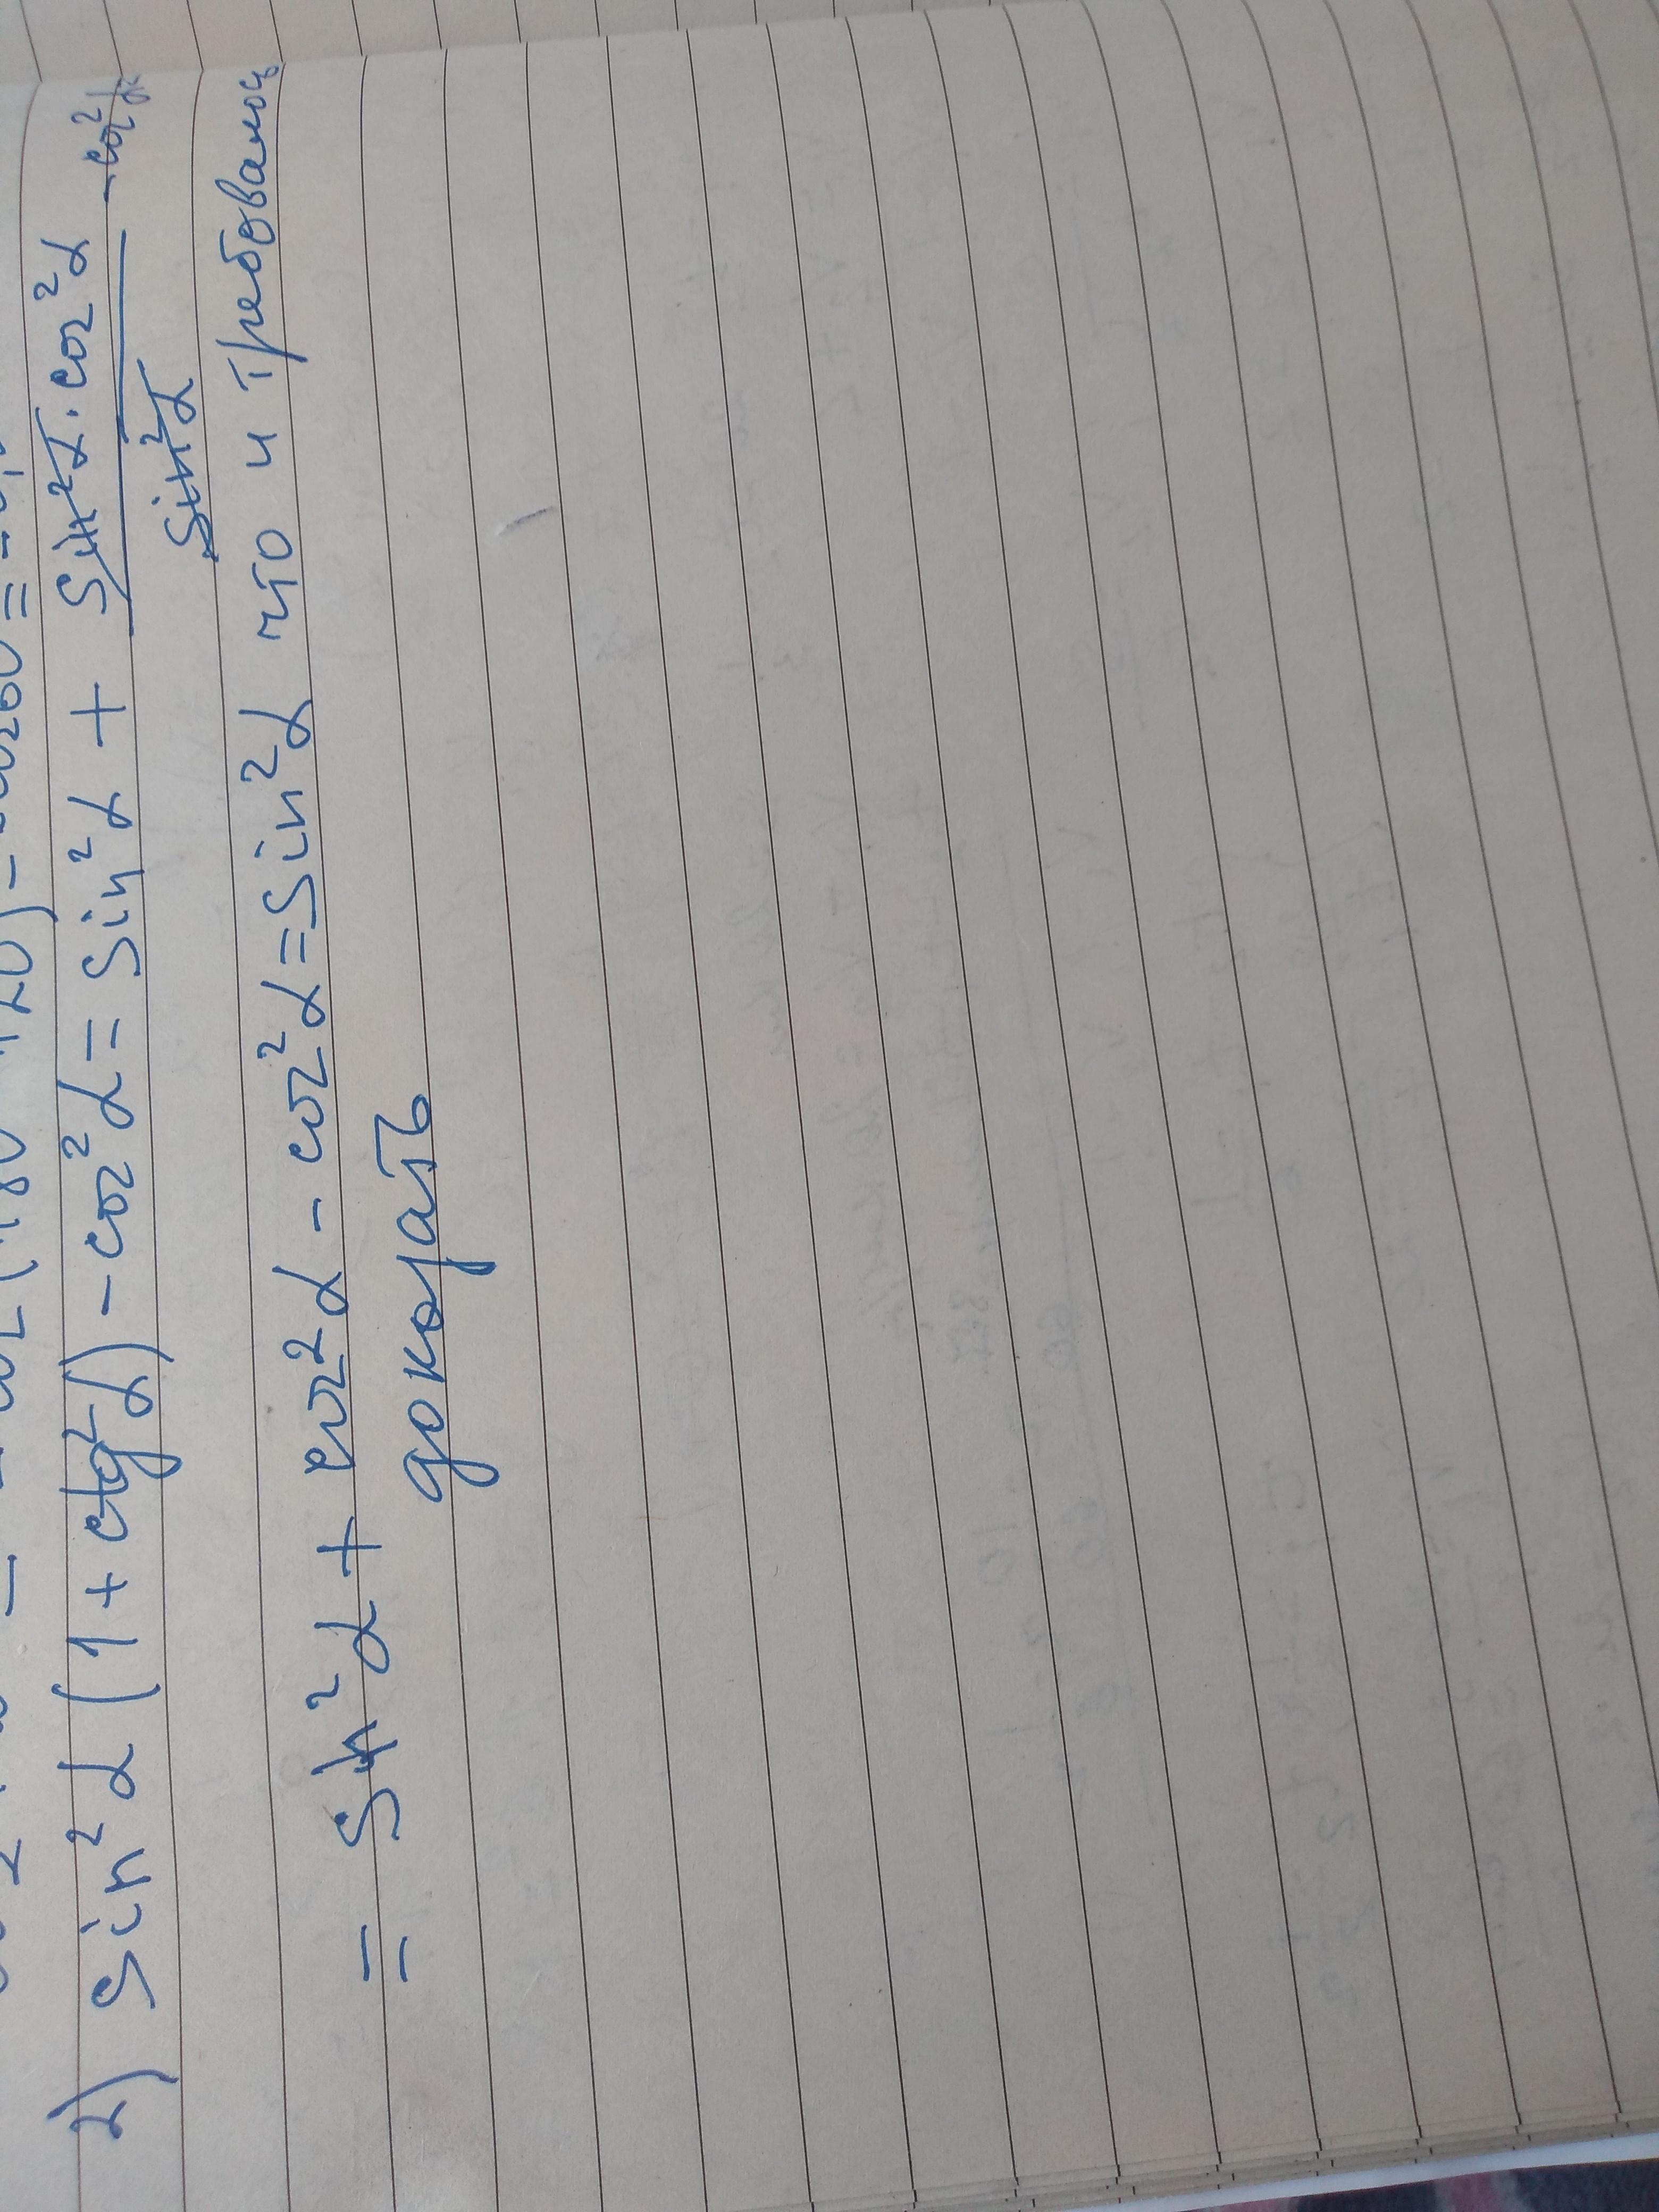 2) sin²α (1 + ctg²α) - cos²α = sin²α + sin²α · cos²α / sin²α - cos²α
= sin²α + cos²α - cos²α = sin²α что и требовалось
доказать